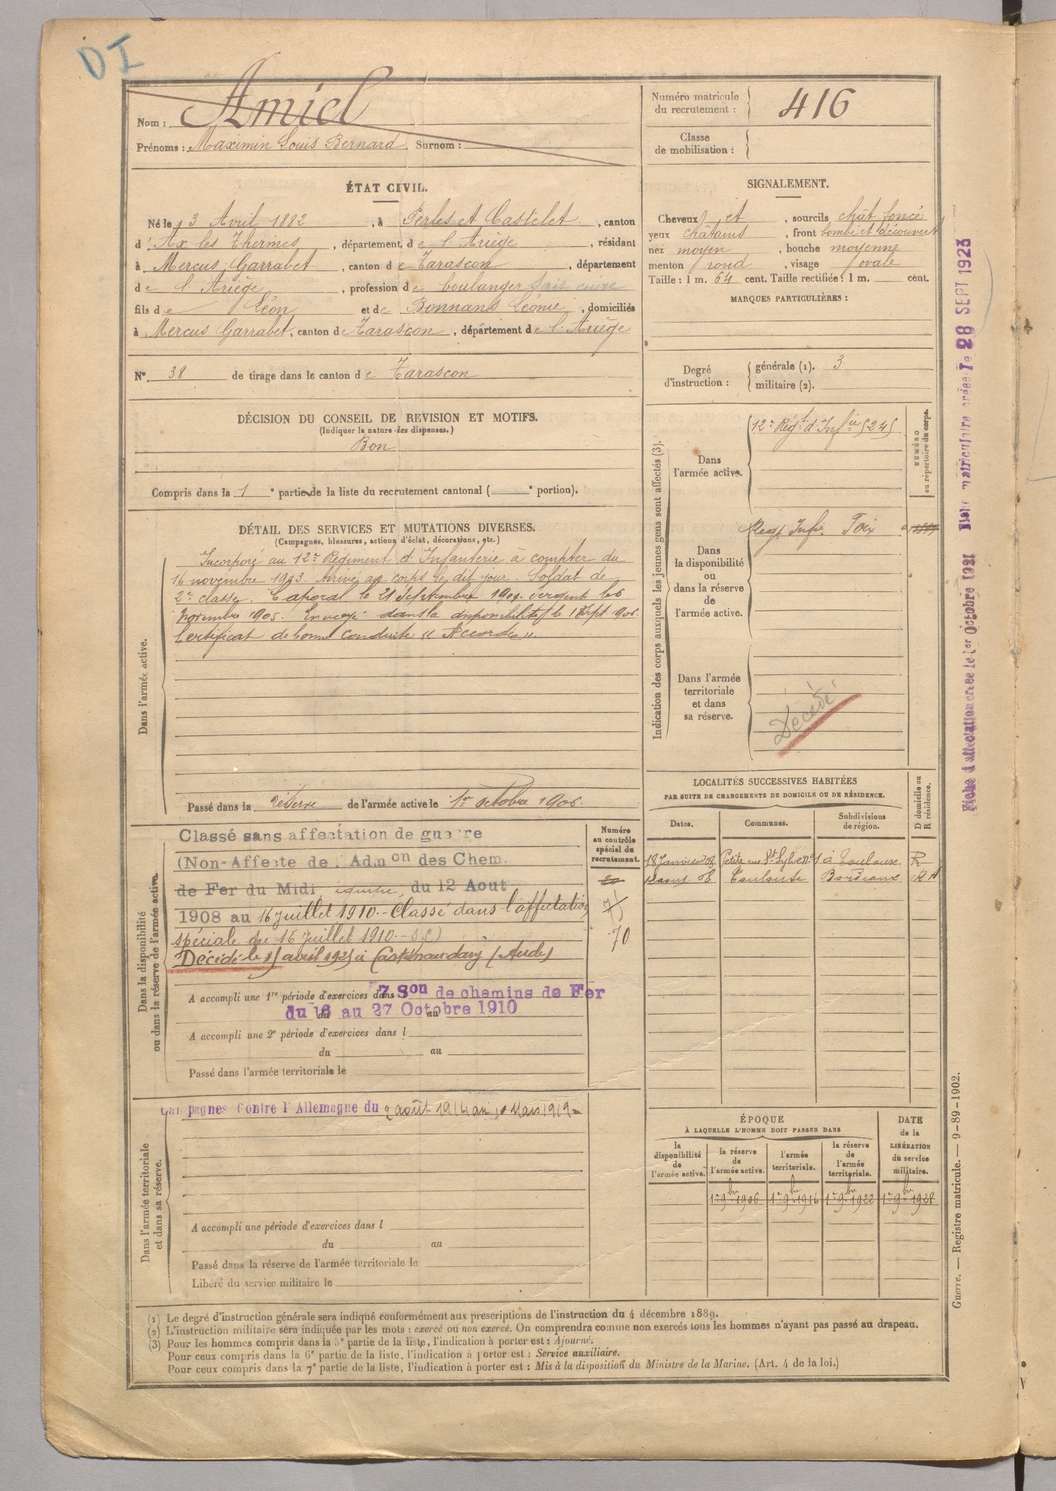 DI
Nom : Amiel
Prénoms : Maximin Louis Bernard Surnom :
Numéro matricule du recrutement : 416
Classe de mobilisation :
ÉTAT CIVIL.
Né le 3 Avril 1882, à Perles et Castelet, canton
d' Ax les Thermes, département de l'Ariège, résidant
à Mercus Garrabet, canton de Tarascon, département
de l'Ariège, profession de boulanger
fils de Léon et de Bonnans Léonie, domiciliés
à Mercus Garrabet, canton de Tarascon, département de l'Ariège
N° 38 de tirage dans le canton de Tarascon
SIGNALEMENT.
Cheveux et, sourcils chât foncé
yeux châtains, front bombé et découvert
nez moyen, bouche moyenne
menton rond, visage ovale
Taille : 1 m. 64 cent. Taille rectifiée : 1 m. cent.
MARQUES PARTICULIÈRES :
Degré d'instruction : générale (1). 3
militaire (2).
DÉCISION DU CONSEIL DE REVISION ET MOTIFS.
(Indiquer la nature des dispenses.)
Bon
Compris dans la 1e partie de la liste du recrutement cantonal (e portion).
DÉTAIL DES SERVICES ET MUTATIONS DIVERSES.
(Campagnes, blessures, actions d'éclat, décorations, etc.)
Dans l'armée active.
Incorporé au 12e Régiment d'Infanterie à compter du
16 novembre 1903. Arrivé au corps le dit jour. Soldat de
2e classe. Caporal le 21 Septembre 1904. Sergent le 6
Novembre 1905. Envoyé dans la disponibilité le 1 Sept 1906.
Certificat de bonne conduite "Accordé".
Passé dans la réserve de l'armée active le 1er octobre 1906.
Dans la disponibilité ou dans la réserve de l'armée active.
Numéro au contrôle spécial du recrutement.
Classé sans affectation de guerre
(Non-Affecté de l'Admon des Chem.
de Fer du Midi, du 12 Aout
1908 au 16 juillet 1910.- Classé dans l'affectation
spéciale du 16 juillet 1910
Décédé le avril 1923 à Castelnaudary (Aude)
70
A accompli une 1re période d'exercices dans 7 Son de chemins de Fer
du 16 au 27 Octobre 1910
A accompli une 2e période d'exercices dans l
du au
Passé dans l'armée territoriale le
Dans l'armée territoriale et dans sa réserve.
Campagnes Contre l'Allemagne du 2 août 1914 au Mars 1919
A accompli une période d'exercices dans l
du au
Passé dans la réserve de l'armée territoriale le
Libéré du service militaire le
Indication des corps auxquels les jeunes gens sont affectés (3).
NUMÉRO au répertoire du corps.
Dans l'armée active. 12e Régt d'Infie
Dans la disponibilité ou dans la réserve de l'armée active. Regt Infie Foix
Dans l'armée territoriale et dans sa réserve. Décédé
LOCALITÉS SUCCESSIVES HABITÉES
PAR SUITE DE CHANGEMENTS DE DOMICILE OU DE RÉSIDENCE.
D domicile ou R résidence.
Dates. Communes. Subdivisions de région.
18 Janvier 08 Petite rue St Sylve n° 1 à Toulouse R
08 Toulouse Bordeaux R
ÉPOQUE
À LAQUELLE L'HOMME DOIT PASSER DANS
DATE de la LIBÉRATION du service militaire.
la disponibilité de l'armée active.
la réserve de l'armée active.
l'armée territoriale.
la réserve de l'armée territoriale.
1er 9bre 1906 1er 9bre 1916 1er 9bre 1922 1er 9bre 1928
Fiche d'affectation créée le 1er Octobre 1921
Fiche matriculaire créée le 28 SEPT 1923
Guerre. — Registre matricule. — 9-89-1902.
(1) Le degré d'instruction générale sera indiqué conformément aux prescriptions de l'instruction du 4 décembre 1889.
(2) L'instruction militaire sera indiquée par les mots : exercé ou non exercé. On comprendra comme non exercés tous les hommes n'ayant pas passé au drapeau.
(3) Pour les hommes compris dans la 5e partie de la liste, l'indication à porter est : Ajourné.
Pour ceux compris dans la 6e partie de la liste, l'indication à porter est : Service auxiliaire.
Pour ceux compris dans la 7e partie de la liste, l'indication à porter est : Mis à la disposition du Ministre de la Marine. (Art. 4 de la loi.)